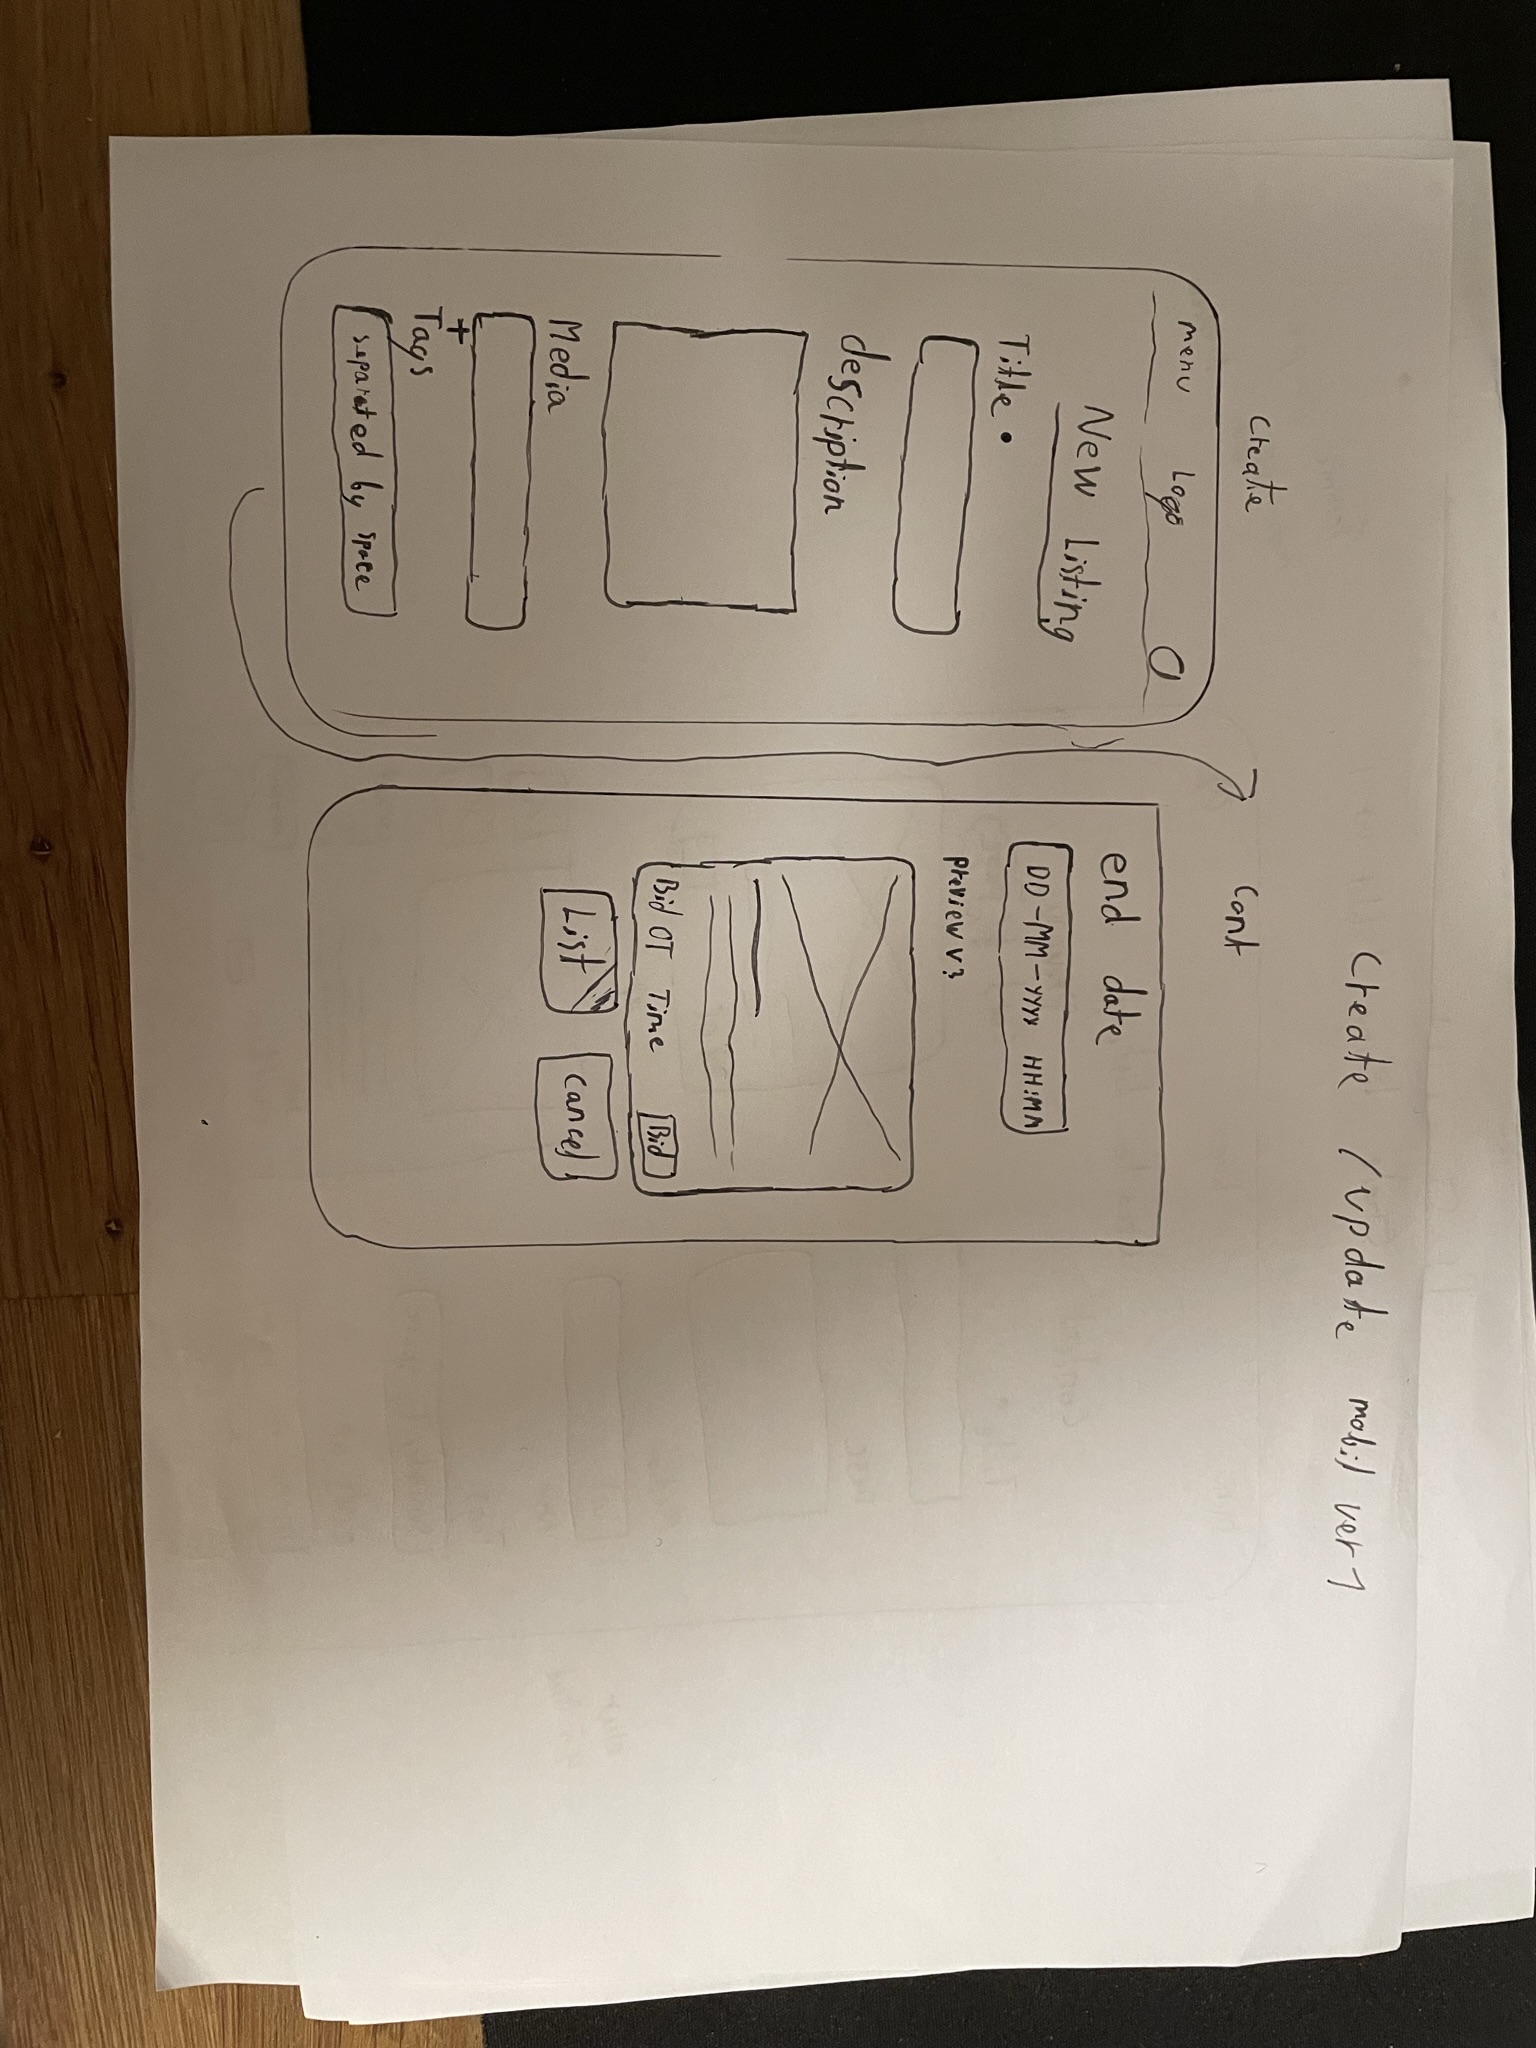 Create /update mobil ver 1
Create
menu Logo
New Listing
Title •
description
Media
+
Tags
separated by space
Cont
end date
DD-MM-YYYY HH:MM
preview v3
Bid OT Time Bid
List cancel